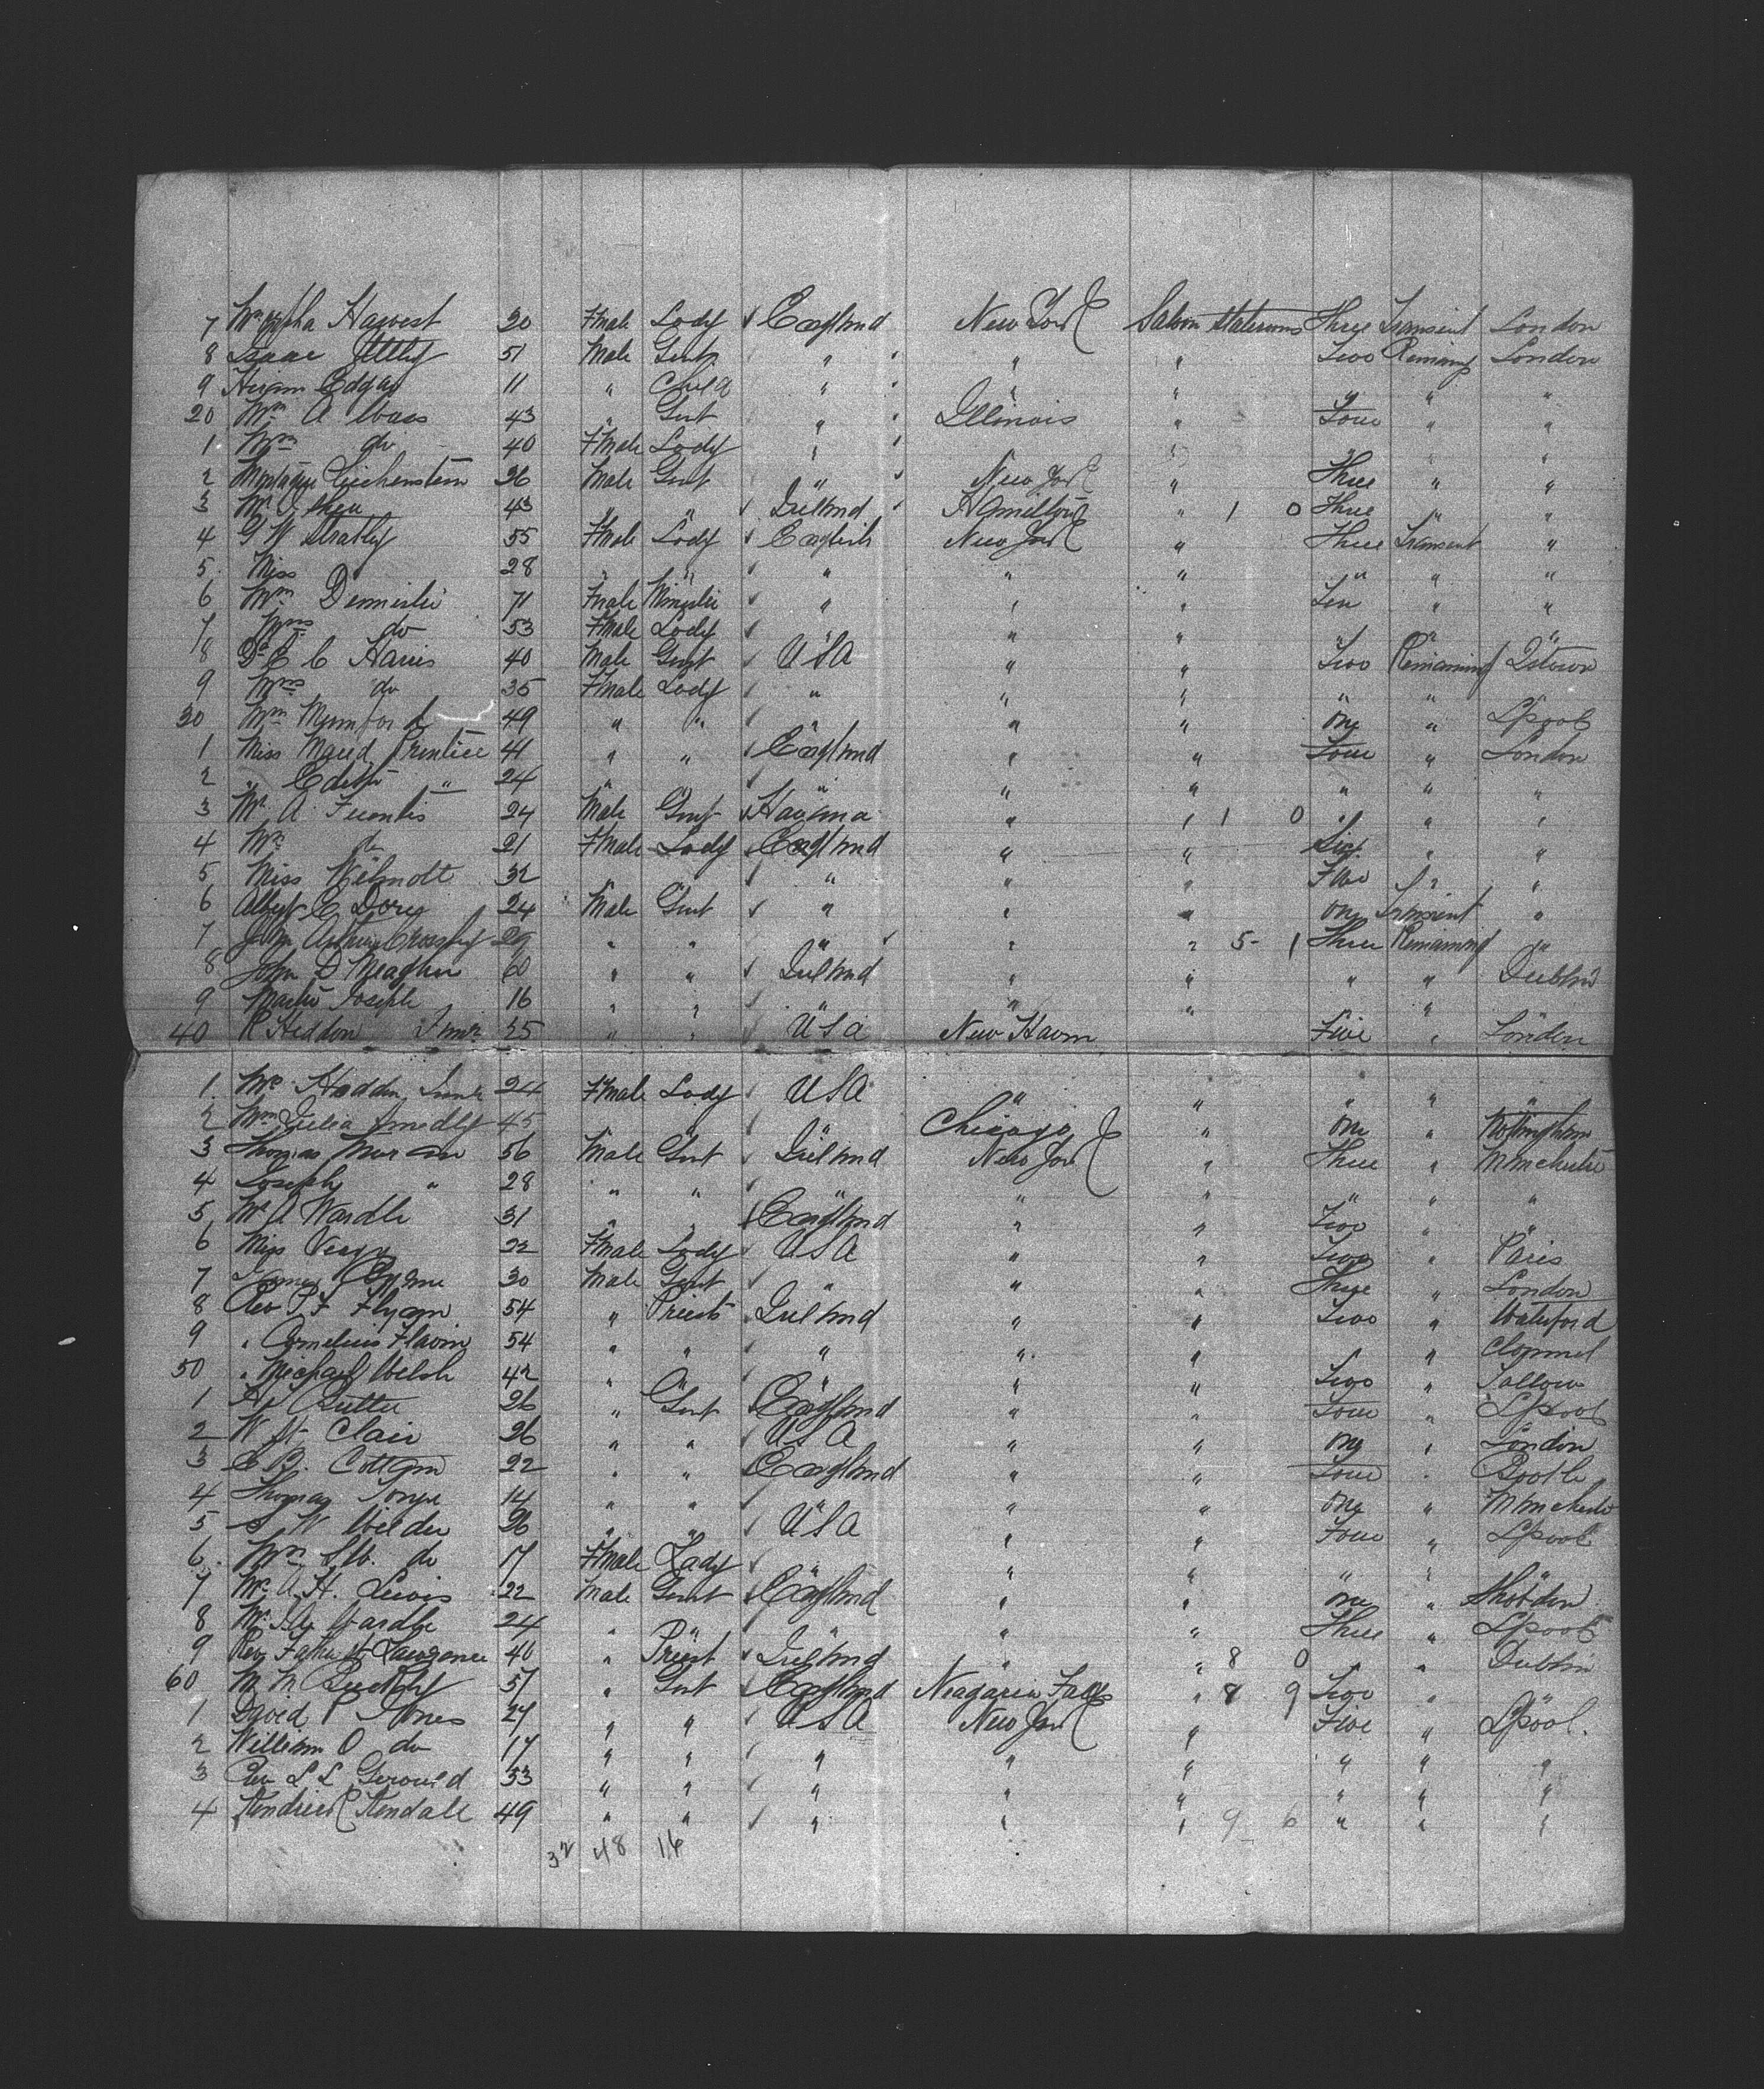 7 Harvest 20 Fmale Lady England New York Saloon Staterooms Three Transient London
8 Isaac 51 Male Gent " " " Two Remaing London
9 Hiram Edgar 11 " Child " " " " " "
20 Mr A 43 " Gent " Illinois " Four " "
1 Mrs do 40 Fmale Lady " " " "
2 Montague Lichenstein 26 Male Gent " New York " Three " "
3 Mr Shea 43 " " Ireland Hamilton " 1 0 Three " "
4 G W Strathy 55 Fmale Lady English New York " Three Transient "
5 Miss 28 " " " " " " " "
6 Mr 71 Fmale " " " Ten " "
7 Mrs do 53 Fmale Lady " " " " " "
8 Dr E C Harris 40 Male Gent USA " " Two Remaining Qstown
9 Mrs do 35 Fmale Lady " " " " " "
30 Mrs Mumford 49 " " " " " One " Lpool
1 Miss Maud Prentice 41 " " England " " Four " London
2 " Edith " 24 " " " " " "
3 Mr A Fuentis 24 Male Gent Havana " " 1 0 " " "
4 Mrs do 21 Fmale Lady England " " Six " "
5 Miss Wilmott 32 " " " " " Five " "
6 Albert E Dore 24 Male Gent " " " One Transient "
7 John Arthur Crossley 29 " " " " " 5 - 1 Three Remaining "
8 John D Meagher 60 " " Ireland " " " " Dublin
9 Master Joseph 16 " " " " " "
40 R Heddon Junr 25 " " USA New Haven Five " London
1 Mrs Haddon Junr 24 Fmale Lady USA " " " " "
2 Mrs Julia Smedley 45 " Chicago " One " Nottingham
3 Thomas Moran 56 Male Gent Ireland New York " Three " Mmchester
4 Joseph " 28 " " " " " " " "
5 Mr A Wardle 31 " " England " " Two " "
6 Miss 22 Fmale Lady USA " " Two " Paris
7 James Byrne 30 Male Gent " " " Three " London
8 Rev P F Flynn 54 " Priest Ireland " " Two " Waterford
9 " Cornelius Flavin 54 " " " " " " " Clonmel
50 " Michael Welsh 42 " " " " " Two " Tallow
1 Butler 26 " Gent England " " Four " Lpool
2 W St Clair 26 " " USA " " One " London
3 C B. Cottam 22 " " England " " Four " Bootle
4 Thomas Tonge 14 " " " " " One " Mmchester
5 S W Wilder 26 " " USA " " Four " Lpool
6 Mrs S W. do 17 Fmale Lady " " " " " "
7 Mr A H. Lewis 22 Male Gent England " " One " Shobdon
8 Mr Wardle 24 " " " " " Three " Lpool
9 Rev Father St Lawrence 40 " Priest Ireland " " 8 0 " " Dublin
60 M M Buckley 57 " Gent England Neagaria Falls " 8 9 Two "
1 David P Jones 27 " " USA New York " Five " Lpool.
2 William O do 17 " " " " " " " "
3 Rev L L Gerould 33 " " " " " " " "
4 Kendrick Kendall 49 " " " " " 9 6 " " "
32 48 16